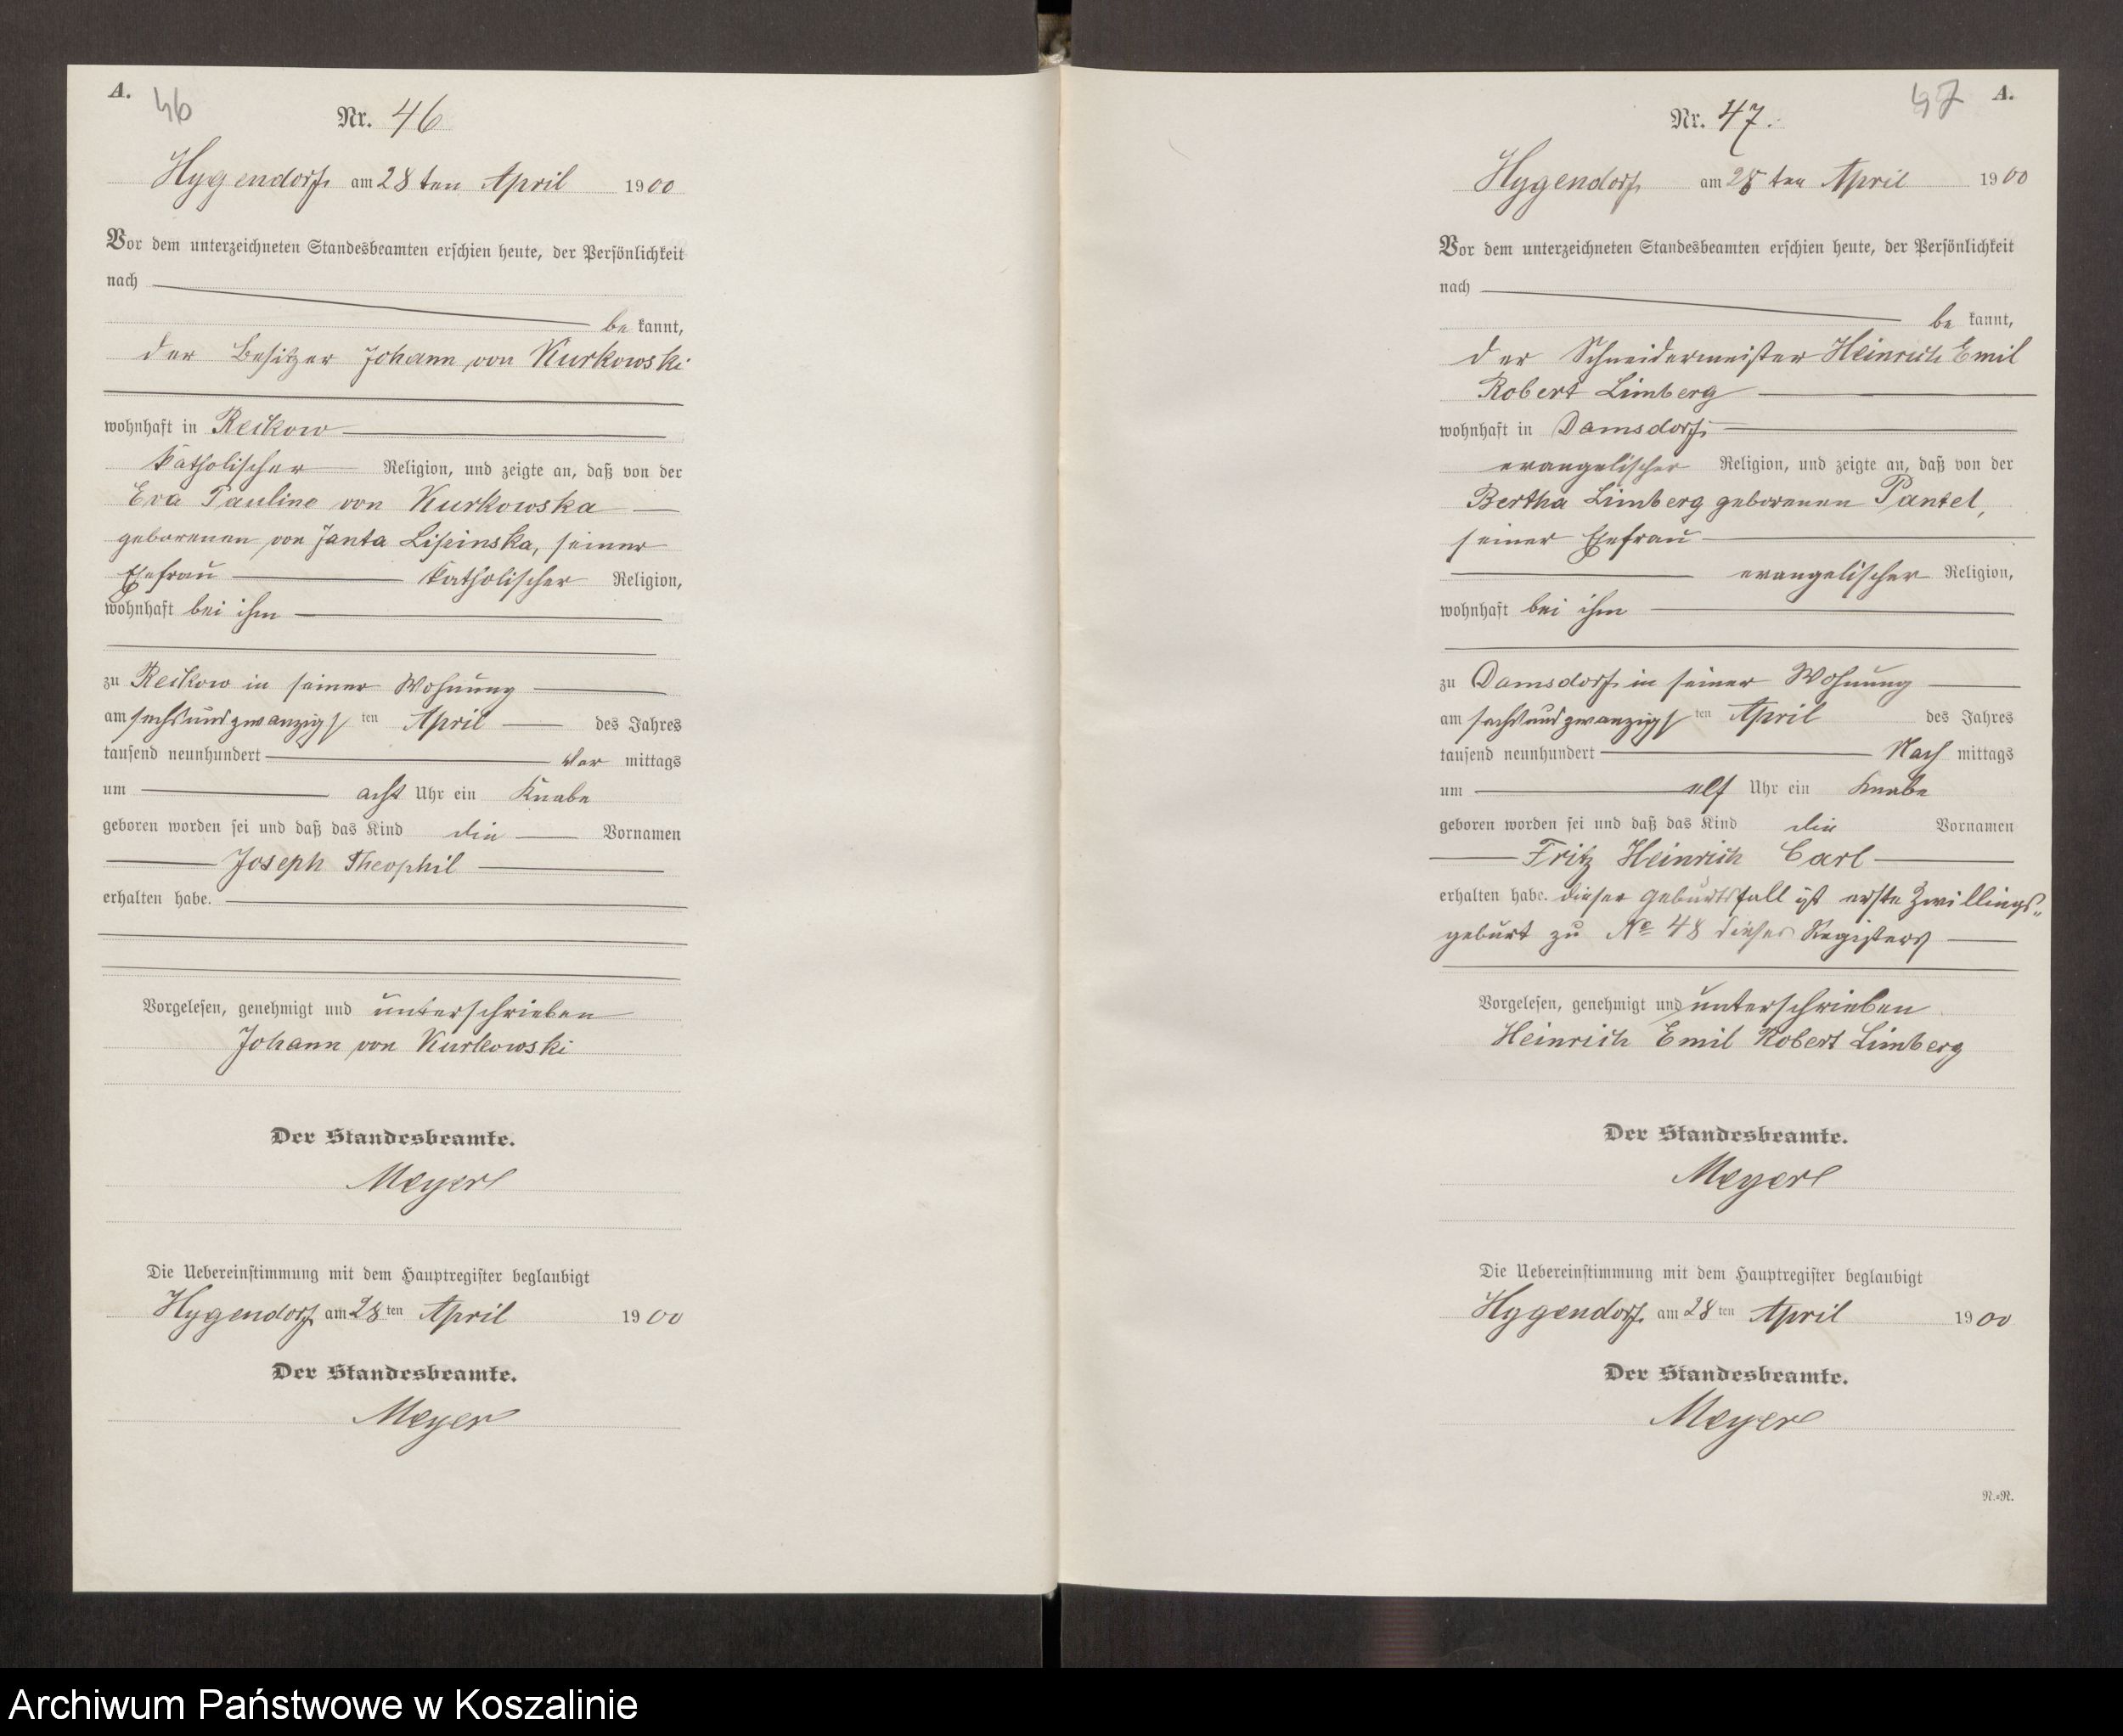 A.
46
Nr. 46
Hygendorf am 28ten April 1900
Vor dem unterzeichneten Standesbeamten erschien heute, der Persönlichkeit
nach
be kannt,
der Besitzer Johann von Kurkowski
wohnhaft in Reckow
katholischer Religion, und zeigte an, daß von der
Eva Pauline von Kurkowska
geborenen von Janta Lipinska, seiner
Ehefrau katholischer Religion,
wohnhaft bei ihm
zu Reckow in seiner Wohnung
am sechsundzwanzigsten April des Jahres
tausend neunhundert Vor mittags
um acht Uhr ein Knabe
geboren worden sei und daß das Kind die Vornamen
Joseph Theophil
erhalten habe.
Vorgelesen, genehmigt und unterschrieben
Johann von Kurkowski
Der Standesbeamte.
Meyer
Die Uebereinstimmung mit dem Hauptregister beglaubigt
Hygendorf am 28ten April 1900
Der Standesbeamte.
Meyer
47 A.
Nr. 47.
Hygendorf am 28ten April 1900
Vor dem unterzeichneten Standesbeamten erschien heute, der Persönlichkeit
nach
be kannt,
der Schneidermeister Heinrich Emil
Robert Limberg
wohnhaft in Damsdorf
evangelischer Religion, und zeigte an, daß von der
Bertha Limberg geborenen Pantel,
seiner Ehefrau
evangelischer Religion,
wohnhaft bei ihm
zu Damsdorf in seiner Wohnung
am sechsundzwanzigsten April des Jahres
tausend neunhundert Nach mittags
um elf Uhr ein Knabe
geboren worden sei und daß das Kind die Vornamen
Fritz Heinrich Carl
erhalten habe. dieser Geburtsfall ist erste Zwillings„
geburt zu No 48 dieses Registers
Vorgelesen, genehmigt und unterschrieben
Heinrich Emil Robert Limberg
Der Standesbeamte.
Meyer
Die Uebereinstimmung mit dem Hauptregister beglaubigt
Hygendorf am 28ten April 1900
Der Standesbeamte.
Meyer
N.=N.
Archiwum Państwowe w Koszalinie